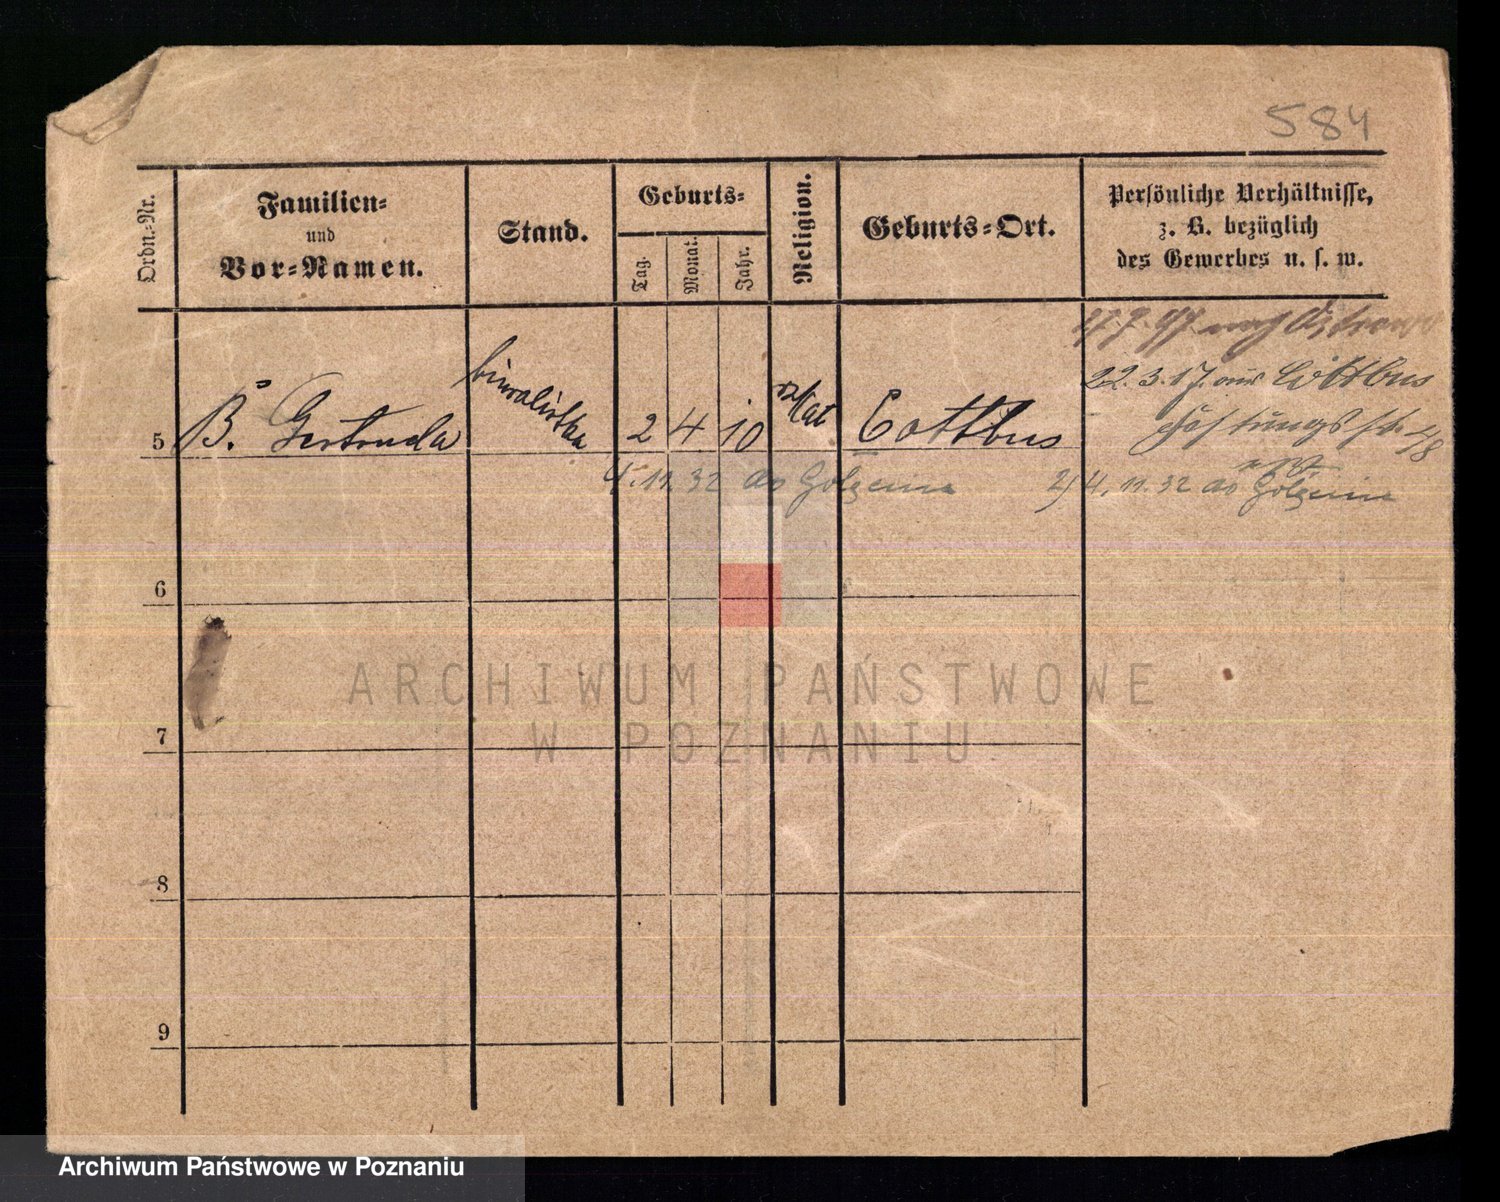 584
Ordn.-Nr.
Familien-
und
Vor-Namen.
Stand.
Geburts-
Tag.
Monat.
Jahr.
Religion.
Geburts-Ort.
Persönliche Verhältnisse,
z. B. bezüglich
des Gewerbes u. s. w.
nach Ostrowo
22. 3. 17. aus Cottbus
5 B. Gertruda biuralistka 2 4 10 kat Cottbus
4. 11. 32 do
2) 4. 11. 32 do
6
ARCHIWUM PAŃSTWOWE
W POZNANIU
7
8
9
Archiwum Państwowe w Poznaniu